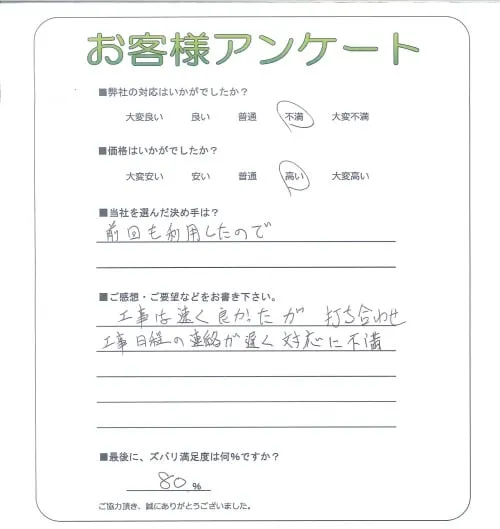 お客様アンケート
■弊社の対応はいかがでしたか？
大変良い 良い 普通 不満 大変不満
■価格はいかがでしたか？
大変安い 安い 普通 高い 大変高い
■当社を選んだ決め手は？
前回も利用したので
■ご感想・ご要望などをお書き下さい。
工事は速く良かったが 打ち合わせ
工事日程の連絡が遅く対応に不満
■最後に、ズバリ満足度は何%ですか？
80 %
ご協力頂き、誠にありがとうございました。